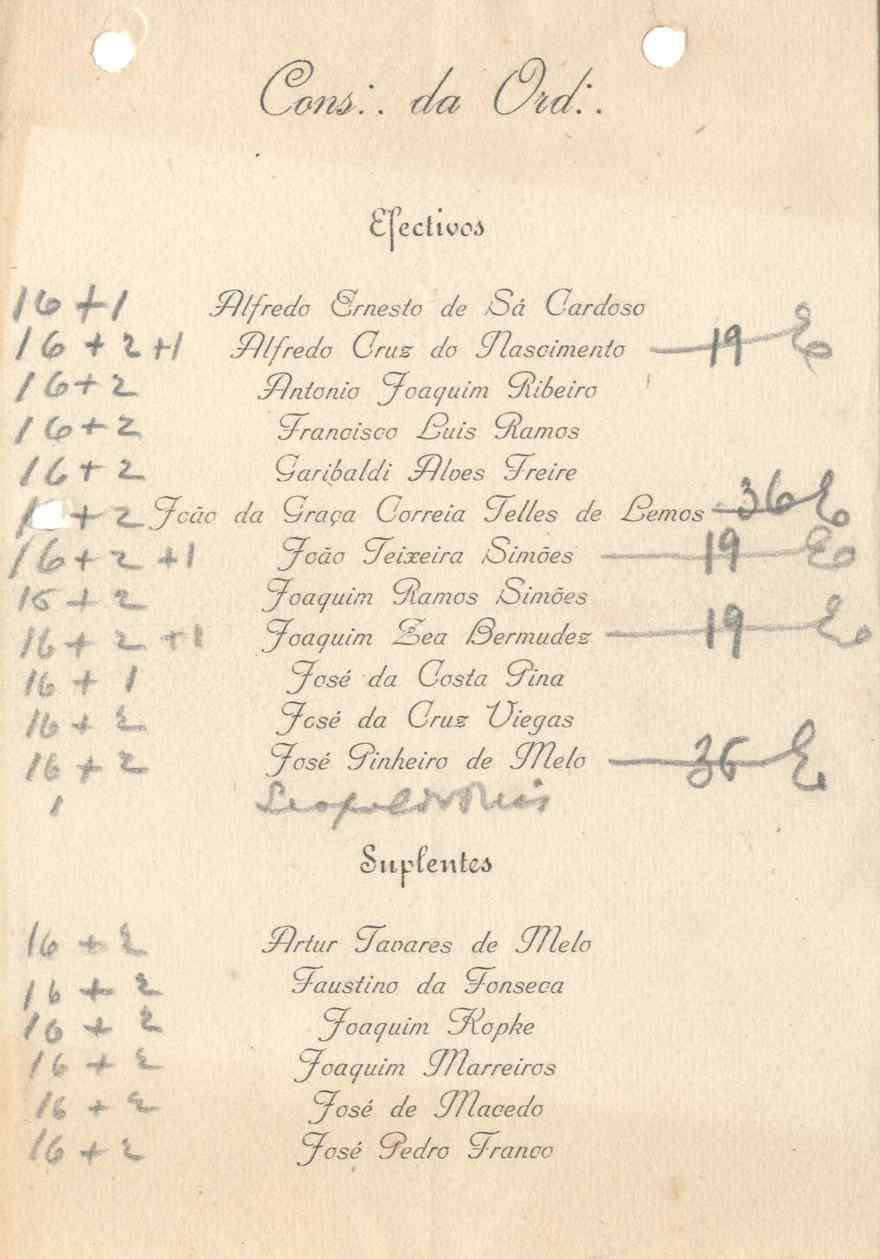 Cons∴ da Ord∴
Efectivos
16+1 Alfredo Ernesto de Sá Cardoso
16+2+1 Alfredo Cruz do Nascimento — 19 E
16+2 Antonio Joaquim Ribeiro
16+2 Francisco Luis Ramos
16+2 Garibaldi Alves Freire
1 +2 João da Graça Correia Telles de Lemos — 36 E
16+2+1 João Teixeira Simões — 19 E
16+2 Joaquim Ramos Simões
16+2+1 Joaquim Zea Bermudez — 19 E
16+1 José da Costa Pina
16+2 José da Cruz Viegas
16+2 José Pinheiro de Melo — 36 E
1 Leopoldo Reis
Suplentes
16+2 Artur Tavares de Melo
16+2 Faustino da Fonseca
16+2 Joaquim Kopke
16+2 Joaquim Marreiros
16+2 José de Macedo
16+2 José Pedro Franco